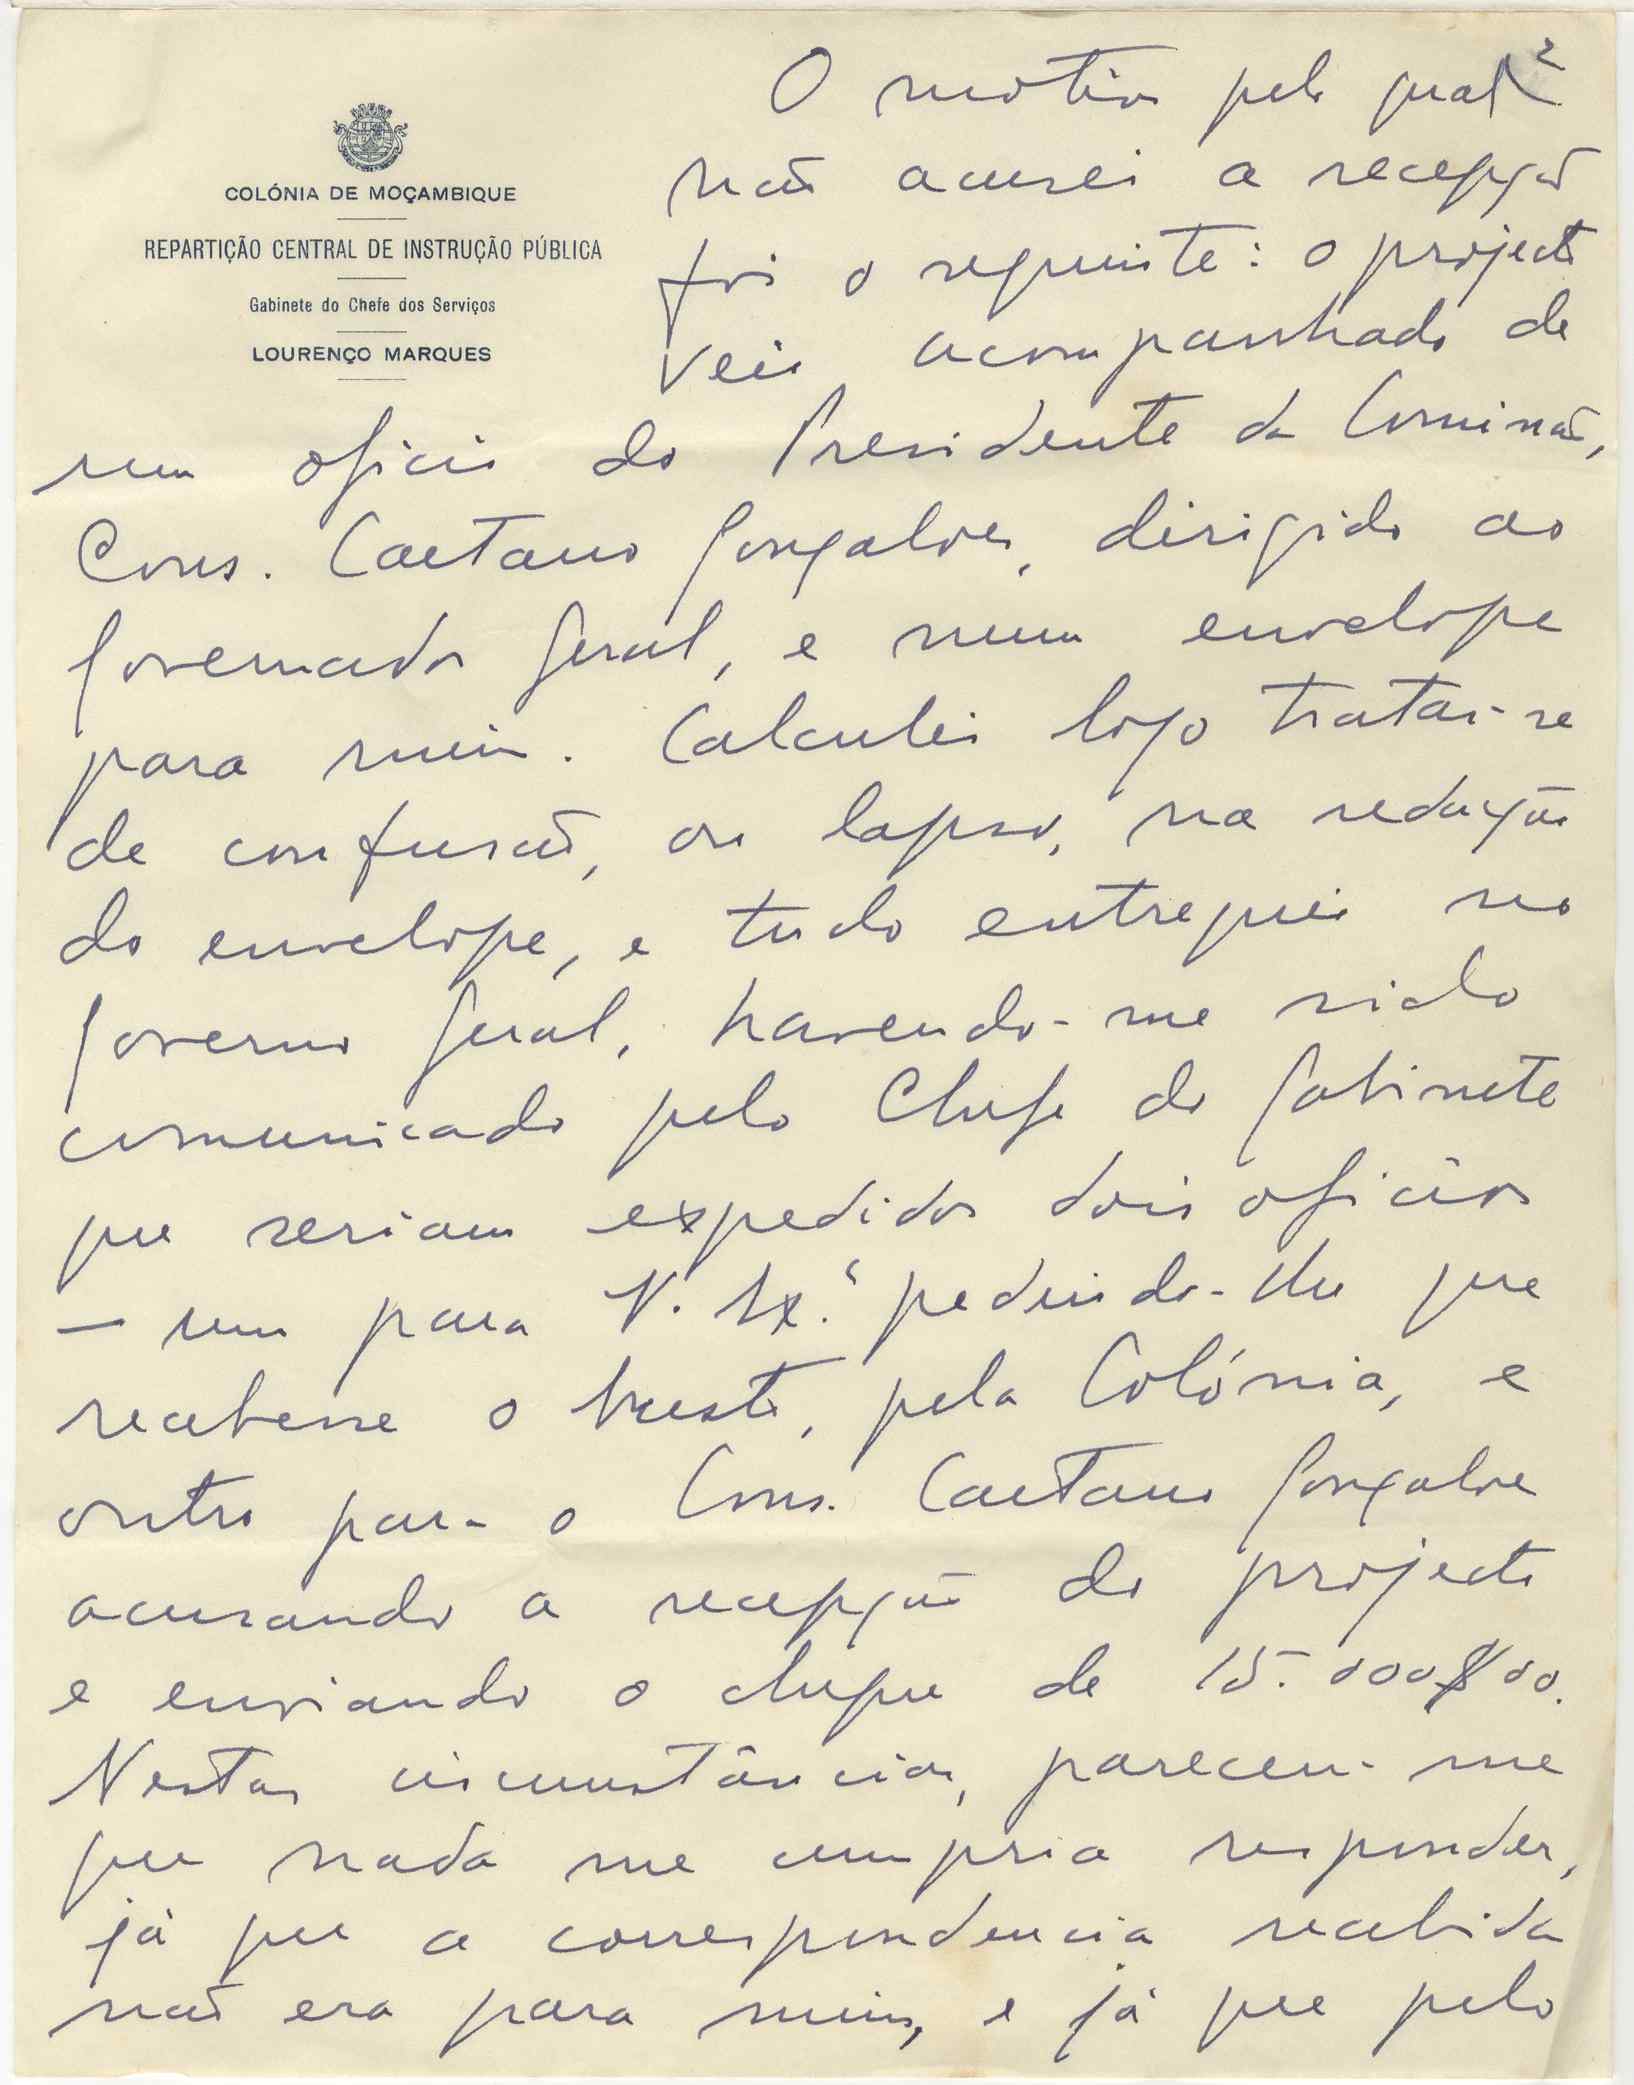 2
COLÓNIA DE MOÇAMBIQUE
REPARTIÇÃO CENTRAL DE INSTRUÇÃO PÚBLICA
Gabinete do Chefe dos Serviços
LOURENÇO MARQUES
O motivo pelo qual
não acusei a recepção
foi o seguinte: o projecto
veio acompanhado de
um ofício do Presidente da Comissão,
Cons. Caetano Gonçalves, dirigido ao
Governador Geral, e num envelope
para mim. Calculei logo tratar-se
de confusão, ou lapso, na redacção
do envelope, e tudo entreguei no
Governo Geral, havendo-me sido
comunicado pelo Chefe do Gabinete
que seriam expedidos dois ofícios
— um para V. Ex.ª pedindo-lhe que
recebesse o busto, pela Colónia, e
outro para o Cons. Caetano Gonçalves
acusando a recepção do projecto
e enviando o cheque de 15.000$00.
Nestas circunstâncias, pareceu-me
que nada me cumpria responder,
já que a correspondencia recebida
não era para mim, e já que pelo